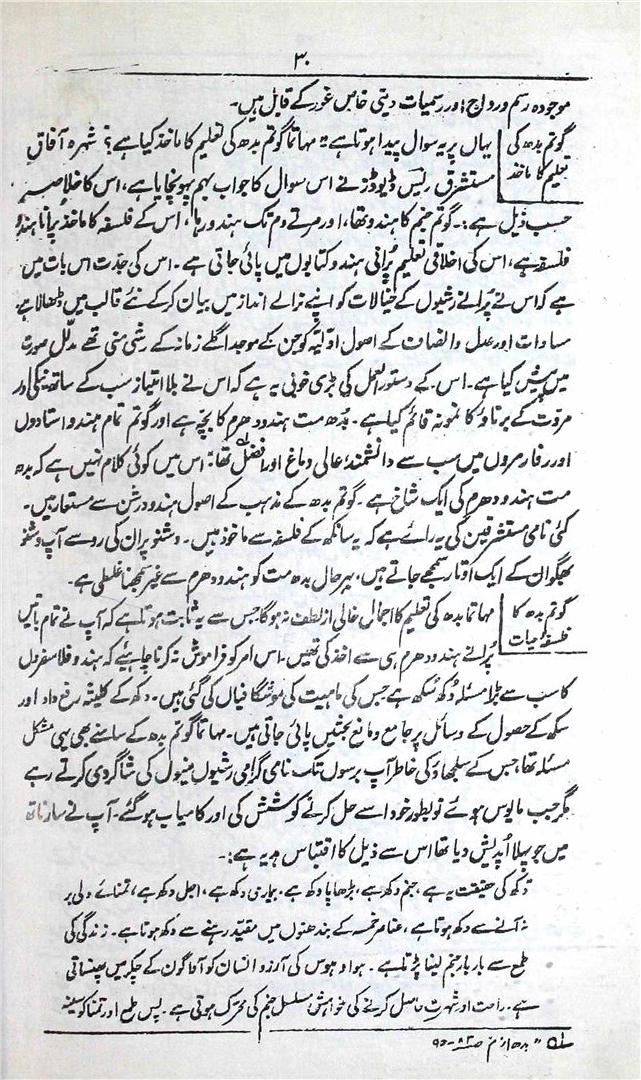 ۳۰
موجودہ رسم ورواج اور رسمیات دیتی خاص غور کے قابل ہیں۔
گوتم بدھ کی
تعلیم کا ماخذ
یہاں پر یہ سوال پیدا ہوتا ہے: مہاتما گوتم بدھ کی تعلیم کا ماخذ کیا ہے؟ شہرہ آفاق
مستشرق ریس ڈیوڈز نے اس سوال کا جواب بہم پہونچایا ہے، اس کا خلاصہ
حسب ذیل ہے:۔ گوتم جنم کا ہندو تھا، اور مرتے دم تک ہندو رہا، اس کے فلسفہ کا ماخذ پرانا ہندو
فلسفہ ہے، اس کی اخلاقی تعلیم پرانی ہندو کتابوں میں پائی جاتی ہے۔ اس کی جدت اس بات میں
ہے کہ اس نے پرانے رشیوں کے خیالات کو اپنے نرالے انداز میں بیان کرکے نئے قالب میں ڈھالا ہے
مساوات اور عدل وانصاف کے اصول اولیہ کو جن کے موجد اگلے زمانہ کے رشی منی تھے مدلل صورت
میں پیش کیا ہے۔ اس کے دستور العمل کی بڑی خوبی یہ ہے کہ اس نے بلا امتیاز سب کے ساتھ نیکی اور
مروت کے برتاؤ کا نمونہ قائم کیا ہے۔ بدھ مت ہندو دھرم کا بچہ ہے اور گوتم تمام ہندو استادوں
اور رفارمروں میں سب سے دانشمند عالی دماغ اور افضل تھا۔ اس میں کوئی کلام نہیں ہے کہ بدھ
مت ہندو دھرم کی ایک شاخ ہے۔ گوتم بدھ کے مذہب کے اصول ہندو درشن سے مستعار ہیں۔
کئی نامی مستشرقین کی یہ رائے ہے کہ یہ سانکھ کے فلسفہ سے ماخوذ ہیں۔ وشنو پران کی رو سے آپ وشنو
بھگوان کے ایک اوتار سمجھے جاتے ہیں، بہرحال بدھ مت کو ہندو دھرم سے غیر سمجھنا غلطی ہے۔
گوتم بدھ کا
فلسفہ حیات
مہاتما بدھ کی تعلیم کا اجمال خالی از لطف نہ ہوگا جس سے یہ ثابت ہوتا ہے کہ آپ نے تمام باتیں
پرانے ہندو دھرم ہی سے اخذ کی تھیں۔ اس امر کو فراموش نہ کرنا چاہئے کہ ہندو فلاسفروں
کا سب سے بڑا مسئلہ دکھ سکھ ہے جس کی ماہیت کی موشگافیاں کی گئی ہیں۔ دکھ کے کلیتہ رفع داد اور
سکھ کے حصول کے وسائل پر جامع ومانع بحثیں پائی جاتی ہیں۔ مہاتما گوتم بدھ کے سامنے بھی یہی مشکل
مسئلہ تھا، جس کے سلجھاؤ کی خاطر آپ برسوں تک نامی گرامی رشیوں منیوں کی شاگردی کرتے رہے
مگر جب مایوس ہوئے تو بطور خود اسے حل کرنے کو کوشش کی اور کامیاب ہوگئے۔ آپ نے سارناتھ
میں جو پہلا اپدیش دیا تھا اس سے ذیل کا اقتباس ہدیہ ہے:۔
دکھ کی حقیقت یہ ہے، جنم دکھ ہے، بڑھاپا دکھ ہے، بیماری دکھ ہے، اجل دکھ ہے، تمنائے دلی بر
نہ آنے سے دکھ ہوتا ہے، عناصر خمسہ کے بندھنوں میں مقید رہنے سے دکھ ہوتا ہے۔ زندگی کی
طمع سے بار بار جنم لینا پڑتا ہے۔ ہوا وہوس کی آرزو انسان کو آواگون کے چکر میں پھنساتی
ہے۔ راحت اور شہرت حاصل کرنے کی خواہش مسلسل جنم کی محرک ہوتی ہے۔ پس طمع اور تمنا کو سینہ
"بدھ ازم صہ ۸۳-۹۵